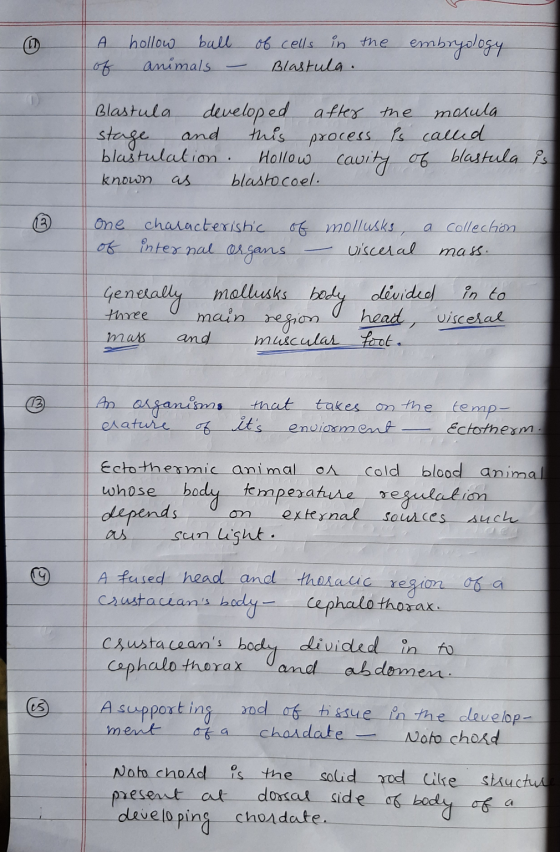 11 A hollow ball of cells in the embryology
of animals — Blastula.
Blastula developed after the morula
stage and this process is called
blastulation. Hollow cavity of blastula is
known as blastocoel.
12 One characteristic of mollusks, a collection
of internal organs — visceral mass.
Generally mollusks body divided in to
three main region head, visceral
mass and muscular foot.
13 An organisms that takes on the temp-
erature of it's enviorment — Ectotherm.
Ectothermic animal or cold blood animal
whose body temperature regulation
depends on external sources such
as sun light.
14 A fused head and thoracic region of a
crustacean's body — cephalothorax.
Crustacean's body divided in to
cephalothorax and abdomen.
15 A supporting rod of tissue in the develop-
ment of a chordate — Noto chord
Noto chord is the solid rod like structure
present at dorsal side of body of a
developing chordate.